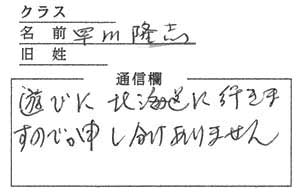 クラス
名前 早川隆志
旧姓
通信欄
遊びに北海道に行きま
すのでが申し分けありません